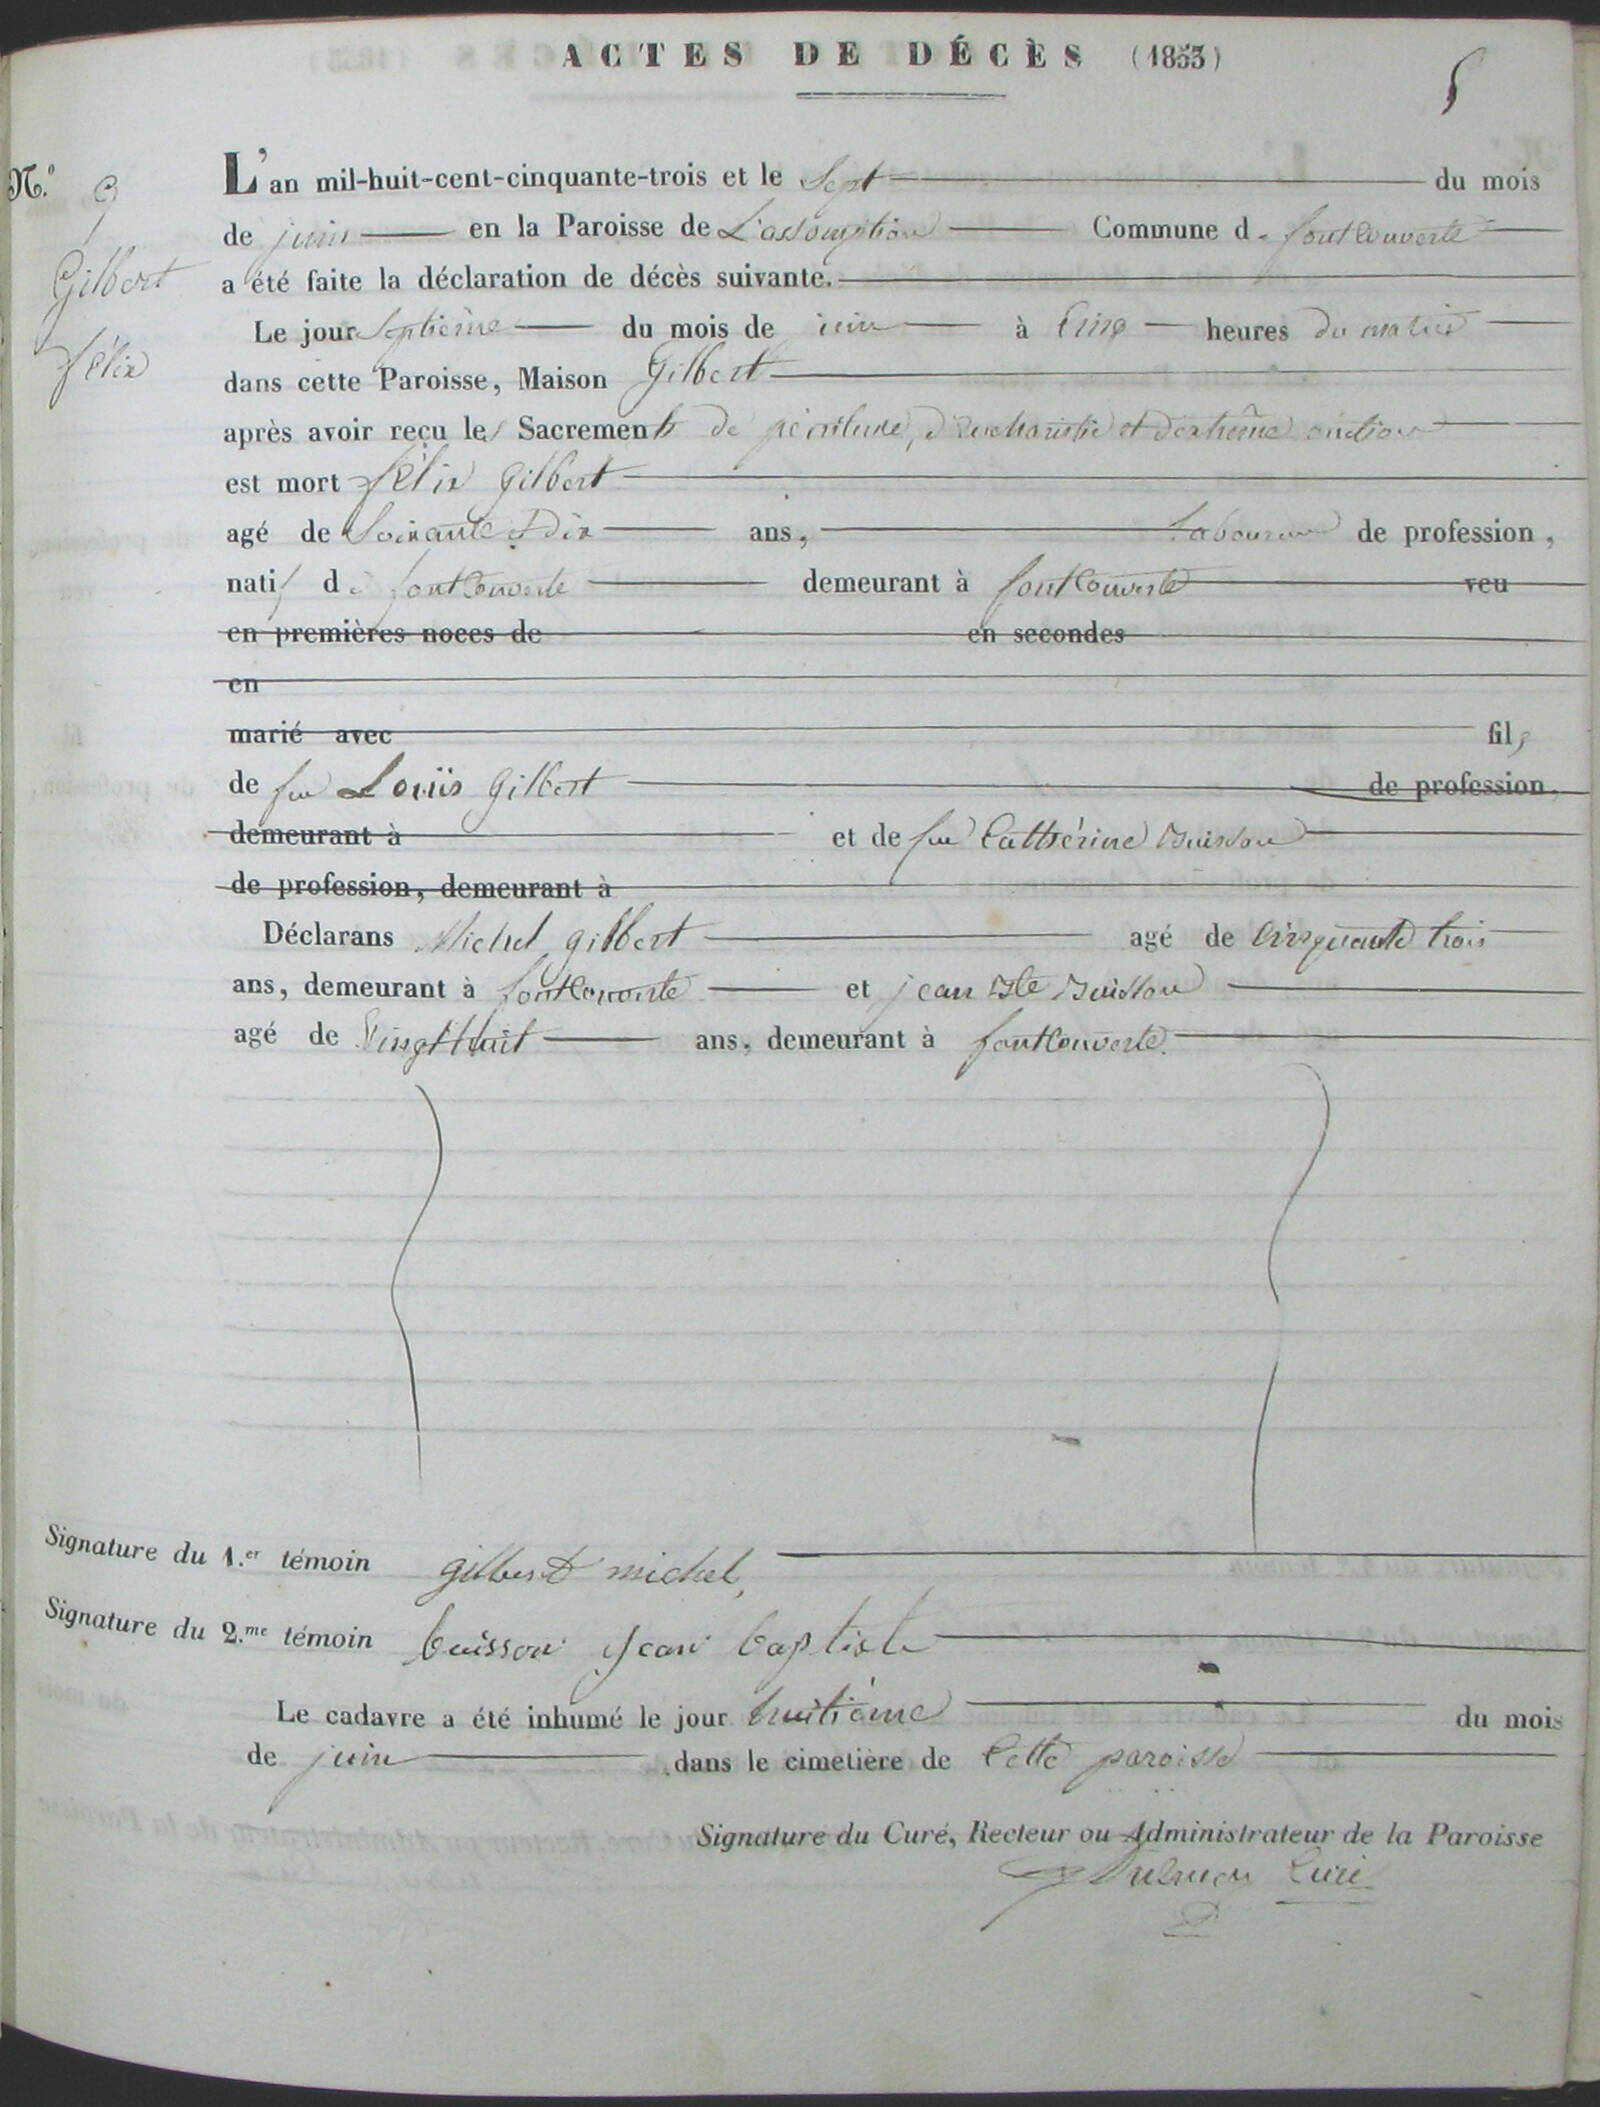 ACTES DE DÉCÈS (1853)
5
N.° 9
Gilbert
félix
L'an mil-huit-cent-cinquante-trois et le Sept du mois
de juin en la Paroisse de L'assomption Commune d. fontCouverte
a été faite la déclaration de décès suivante.
Le jour Septième du mois de juin à Cinq heures du matin
dans cette Paroisse, Maison Gilbert
après avoir reçu les Sacrements de pénitence, d'eucharistie et d'extrême onction
est mort félix Gilbert
agé de Soixante & Dix ans, Laboureur de profession,
natif de fontCouverte demeurant à fontCouverte veu
en premières noces de en secondes
en
marié avec fils
de feu Louïs Gilbert de profession,
demeurant à et de feu Cathérine Buisson
de profession, demeurant à
Déclarans Michel Gilbert agé de Cinquante trois
ans, demeurant à fontCouverte et jean Bte Buisson
agé de Vingt huit ans, demeurant à fontCouverte.
Signature du 1.er témoin gilbert michel,
Signature du 2.me témoin buisson jean baptiste
Le cadavre a été inhumé le jour huitième du mois
de juin dans le cimetière de Cette paroisse
Signature du Curé, Recteur ou Administrateur de la Paroisse
Curé